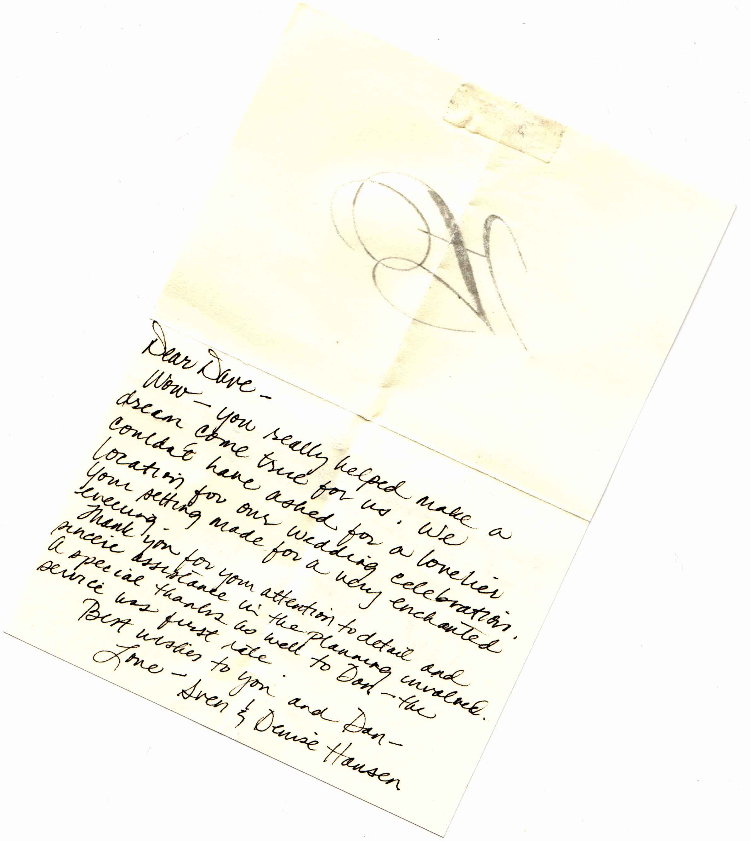 H
Dear Dave -
Wow - you really helped make a
dream come true for us. We
couldn't have asked for a lovelier
location for our wedding celebration.
Your setting made for a very enchanted
evening.
Thank you for your attention to detail and
sincere assistance in the planning involved.
A special thanks as well to Dan - the
service was first rate.
Best wishes to you and Dan -
Love -
Sven & Denise Hansen